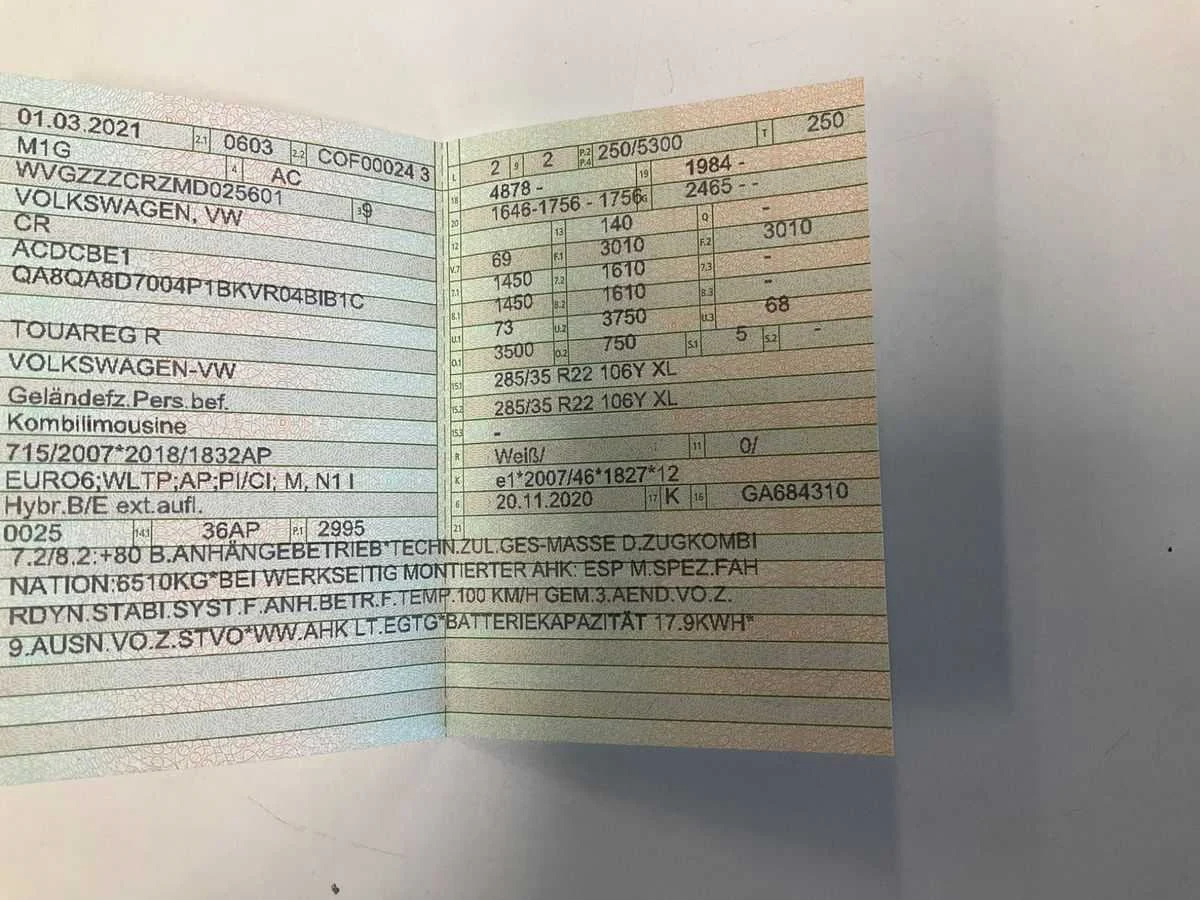 01.03.2021 2.1 0603 2.2 COF00024 3
M1G 4 AC
WVGZZZCRZMD025601 3 9
VOLKSWAGEN, VW
CR
ACDCBE1
QA8QA8D7004P1BKVR04BIB1C
TOUAREG R
VOLKSWAGEN-VW
Geländefz.Pers.bef.
Kombilimousine
715/2007*2018/1832AP
EURO6;WLTP;AP;PI/CI; M, N1 I
Hybr.B/E ext.aufl.
0025 14.1 36AP P.1 2995
L 2 9 2 P.2 P.4 250/5300 T 250
18 4878 - 19 1984 -
20 1646-1756 - 1756 G 2465 - -
12 13 140 Q -
V.7 69 F.1 3010 F.2 3010
7.1 1450 7.2 1610 7.3 -
8.1 1450 8.2 1610 8.3 -
U.1 73 U.2 3750 U.3 68
O.1 3500 O.2 750 S.1 5 S.2 -
15.1 285/35 R22 106Y XL
15.2 285/35 R22 106Y XL
15.3 -
R Weiß/ 11 0/
K e1*2007/46*1827*12
6 20.11.2020 17 K 16 GA684310
21
7.2/8.2:+80 B.ANHÄNGEBETRIEB*TECHN.ZUL.GES-MASSE D.ZUGKOMBI
NATION:6510KG*BEI WERKSEITIG MONTIERTER AHK: ESP M.SPEZ.FAH
RDYN.STABI.SYST.F.ANH.BETR.F.TEMP.100 KM/H GEM.3.AEND.VO.Z.
9.AUSN.VO.Z.STVO*WW.AHK LT.EGTG*BATTERIEKAPAZITÄT 17.9KWH*